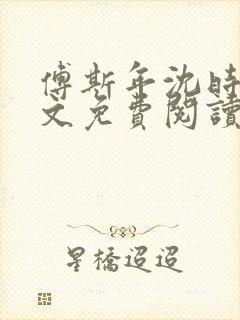 傅斯年沈時
文免費閱讀
星橋迢迢